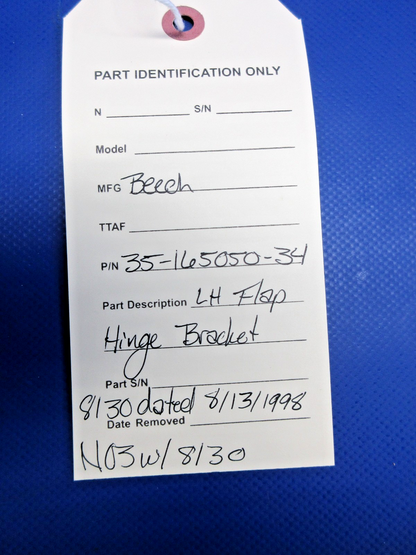 PART IDENTIFICATION ONLY
N S/N
Model
MFG Beech
TTAF
P/N 35-165050-34
Part Description LH Flap
Hinge Bracket
Part S/N
8130 dated 8/13/1998
Date Removed
N03 w/ 8130